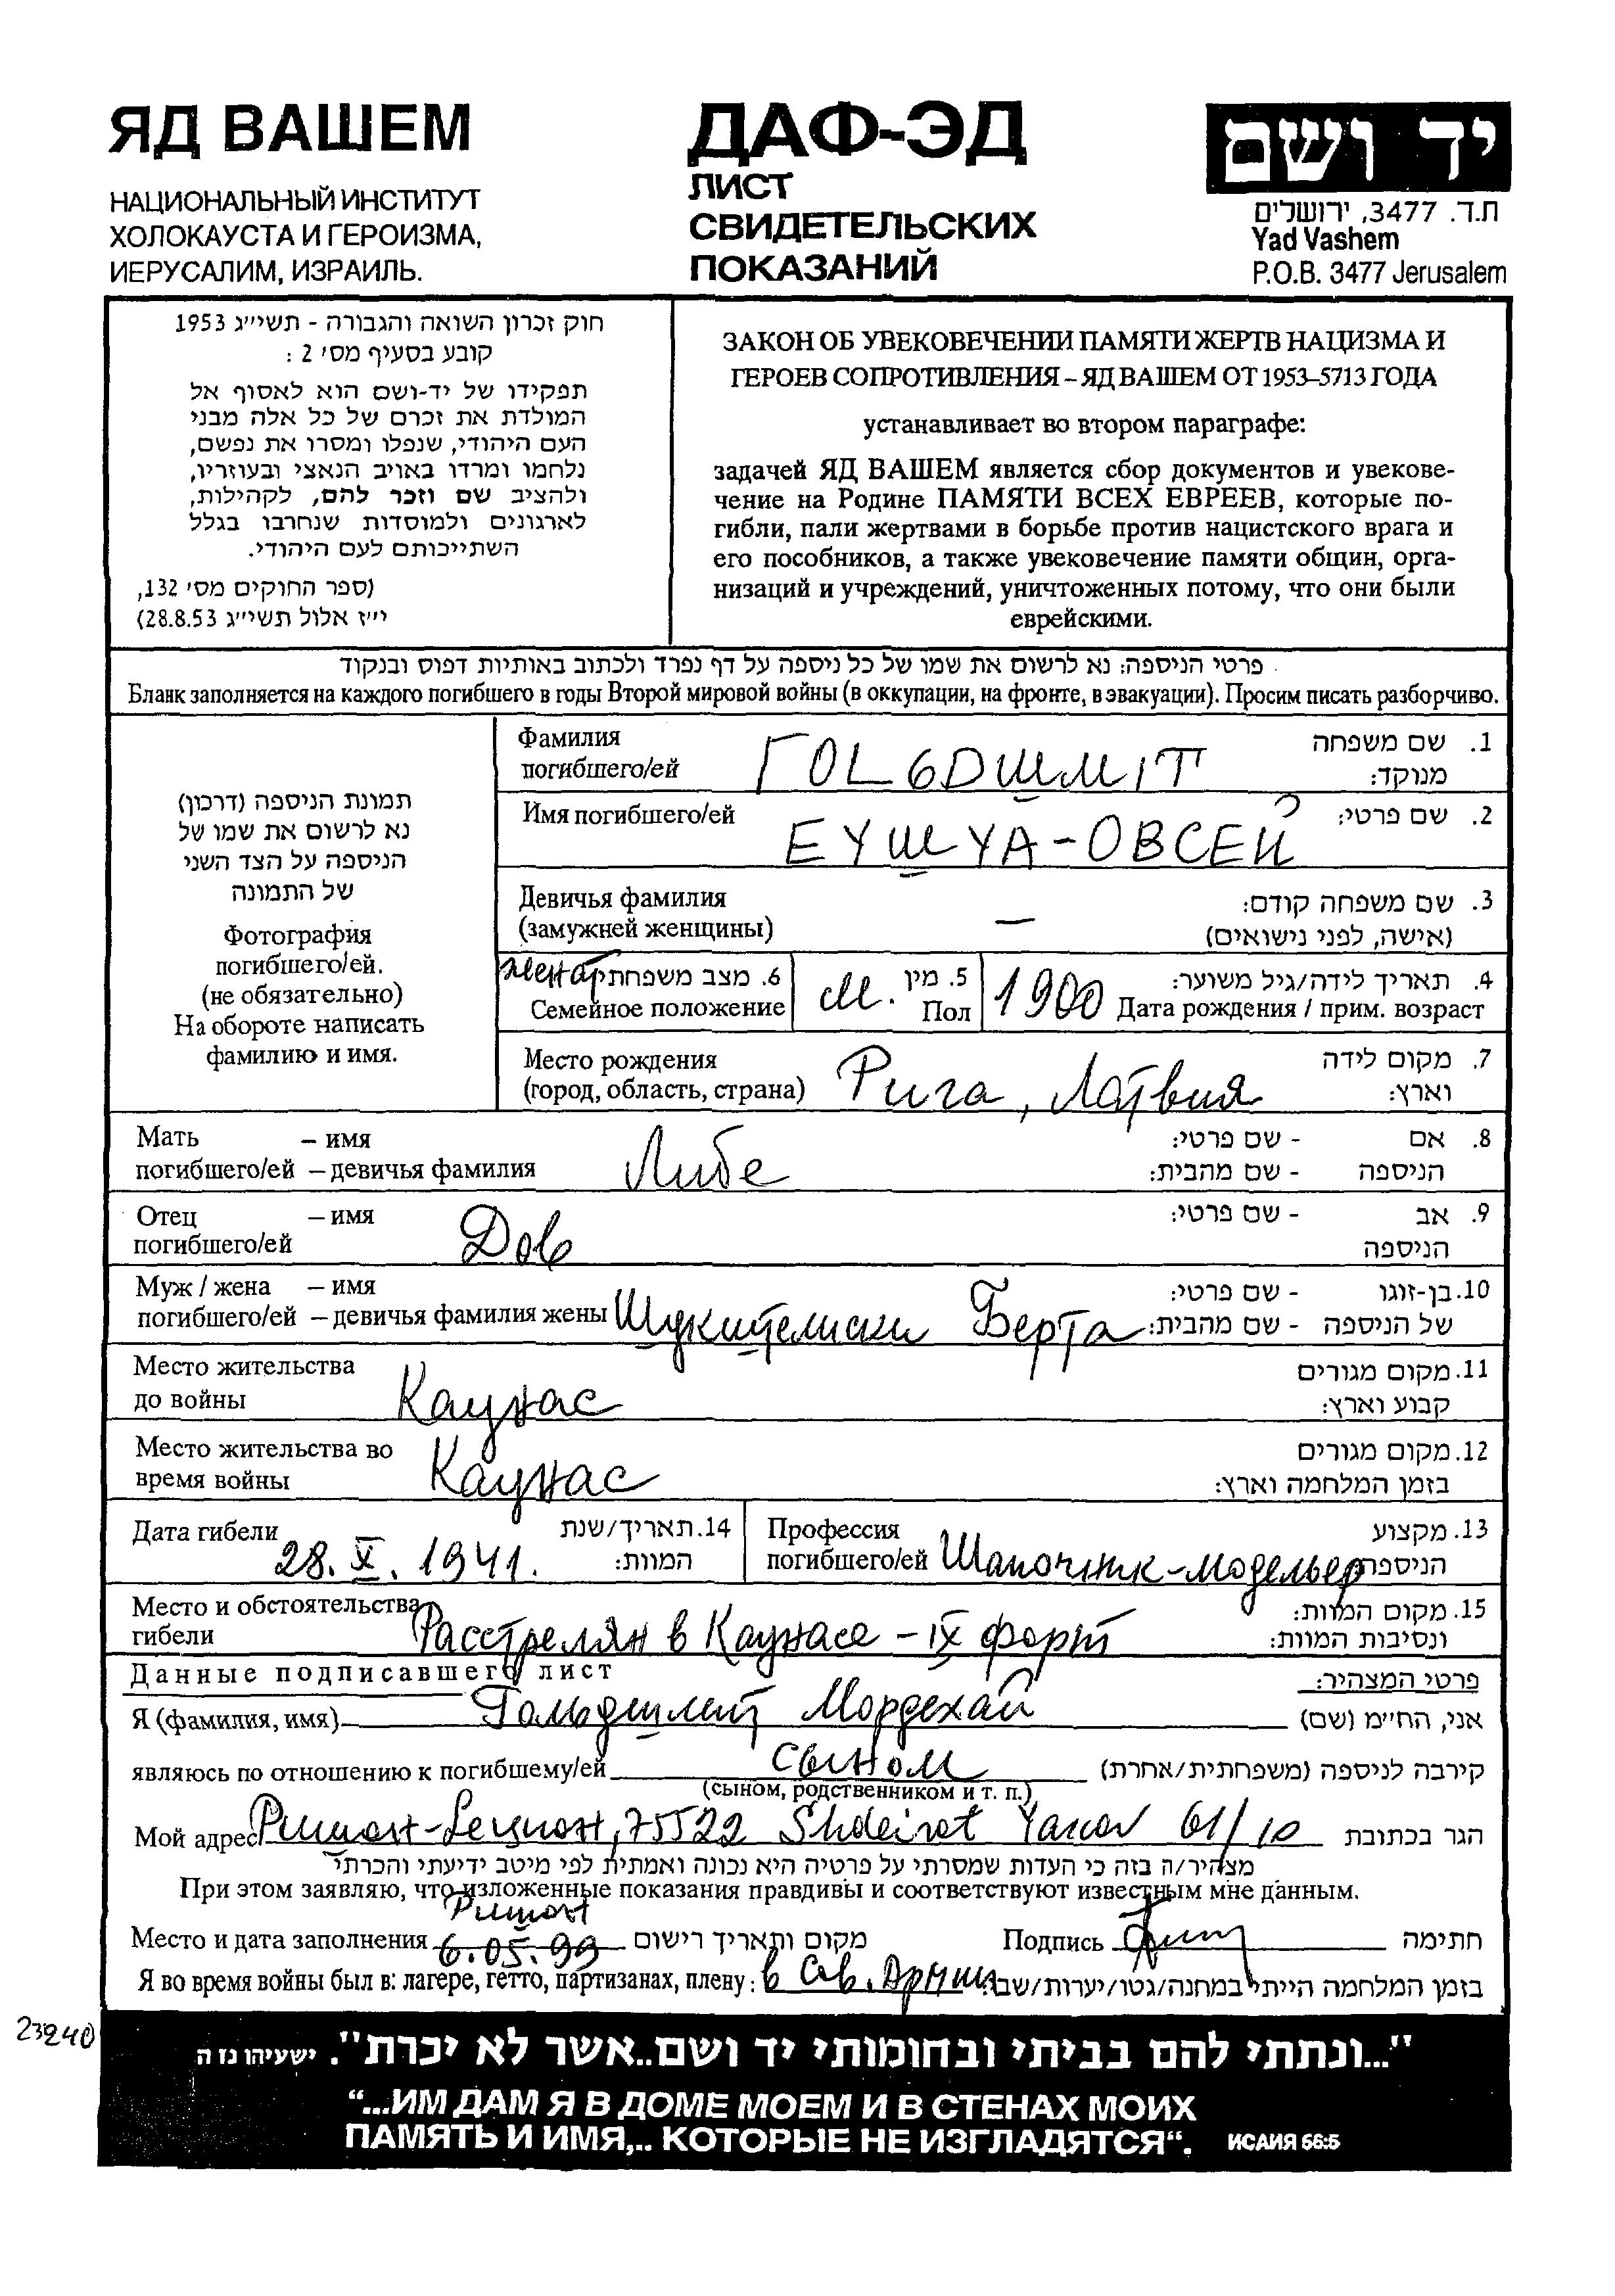 ЯД ВАШЕМ
НАЦИОНАЛЬНЫЙ ИНСТИТУТ
ХОЛОКАУСТА И ГЕРОИЗМА,
ИЕРУСАЛИМ, ИЗРАИЛЬ.
ДАФ-ЭД
ЛИСТ
СВИДЕТЕЛЬСКИХ
ПОКАЗАНИЙ
יד ושם
ת.ד. 3477, ירושלים
Yad Vashem
P.O.B. 3477 Jerusalem
חוק זכרון השואה והגבורה - תשי״ג 1953
קובע בסעיף מס׳ 2 :
תפקידו של יד-ושם הוא לאסוף אל
המולדת את זכרם של כל אלה מבני
העם היהודי, שנפלו ומסרו את נפשם,
נלחמו ומרדו באויב הנאצי ובעוזריו,
ולהציב שם וזכר להם, לקהילות,
לארגונים ולמוסדות שנחרבו בגלל
השתייכותם לעם היהודי.
(ספר החוקים מס׳ 132,
י״ז אלול תשי״ג 28.8.53)
ЗАКОН ОБ УВЕКОВЕЧЕНИИ ПАМЯТИ ЖЕРТВ НАЦИЗМА И
ГЕРОЕВ СОПРОТИВЛЕНИЯ – ЯД ВАШЕМ ОТ 1953–5713 ГОДА
устанавливает во втором параграфе:
задачей ЯД ВАШЕМ является сбор документов и увекове-
чение на Родине ПАМЯТИ ВСЕХ ЕВРЕЕВ, которые по-
гибли, пали жертвами в борьбе против нацистского врага и
его пособников, а также увековечение памяти общин, орга-
низаций и учреждений, уничтоженных потому, что они были
еврейскими.
פרטי הניספה: נא לרשום את שמו של כל ניספה על דף נפרד ולכתוב באותיות דפוס ובנקוד
Бланк заполняется на каждого погибшего в годы Второй мировой войны (в оккупации, на фронте, в эвакуации). Просим писать разборчиво.
תמונת הניספה (דרכון)
נא לרשום את שמו של
הניספה על הצד השני
של התמונה
Фотография
погибшего/ей.
(не обязательно)
На обороте написать
фамилию и имя.
Фамилия שם משפחה 1.
погибшего/ей ГОЛЬДШМИТ מנוקד:
Имя погибшего/ей ЕУШУА-ОВСЕЙ שם פרטי: 2.
Девичья фамилия שם משפחה קודם: 3.
(замужней женщины) — (אישה, לפני נישואים)
женат 6. מצב משפחתי
Семейное положение
м. 5. מין
Пол
1900 4. תאריך לידה/גיל משוער:
Дата рождения / прим. возраст
Место рождения 7. מקום לידה
(город, область, страна) Рига, Латвия וארץ:
Мать – имя אם - שם פרטי: 8.
погибшего/ей – девичья фамилия Либе הניספה - שם מהבית:
Отец – имя אב - שם פרטי: 9.
погибшего/ей Дов הניספה
Муж / жена – имя 10. בן-זוגו - שם פרטי:
погибшего/ей – девичья фамилия жены Берта של הניספה - שם מהבית:
Место жительства 11. מקום מגורים
до войны Каунас קבוע וארץ:
Место жительства во 12. מקום מגורים
время войны Каунас בזמן המלחמה וארץ:
Дата гибели 14. תאריך/שנת
28. X. 1941. המוות:
Профессия 13. מקצוע
погибшего/ей Шапочник-модельер הניספה
Место и обстоятельства 15. מקום המוות:
гибели Расстрелян в Каунасе – IX форт ונסיבות המוות:
Данные подписавшего лист פרטי המצהיר:
Я (фамилия, имя) Гольдшмит Мордехай אני, הח״מ (שם)
являюсь по отношению к погибшему/ей сыном קירבה לניספה (משפחתית/אחרת)
(сыном, родственником и т. п.)
Мой адрес 75522 61/10 הגר בכתובת
מצהיר/ה בזה כי העדות שמסרתי על פרטיה היא נכונה ואמתית לפי מיטב ידיעתי והכרתי
При этом заявляю, что изложенные показания правдивы и соответствуют известным мне данным.
Место и дата заполнения 6.05.99 מקום ותאריך רישום Подпись חתימה
Я во время войны был в: лагере, гетто, партизанах, плену: в Сов. Армии בזמן המלחמה הייתי במחנה/גטו/יערות/שבי:
23240
"...ונתתי להם בביתי ובחומותי יד ושם..אשר לא יכרת". ישעיהו נז ה
“...ИМ ДАМ Я В ДОМЕ МОЕМ И В СТЕНАХ МОИХ
ПАМЯТЬ И ИМЯ,.. КОТОРЫЕ НЕ ИЗГЛАДЯТСЯ“. ИСАИЯ 56:5